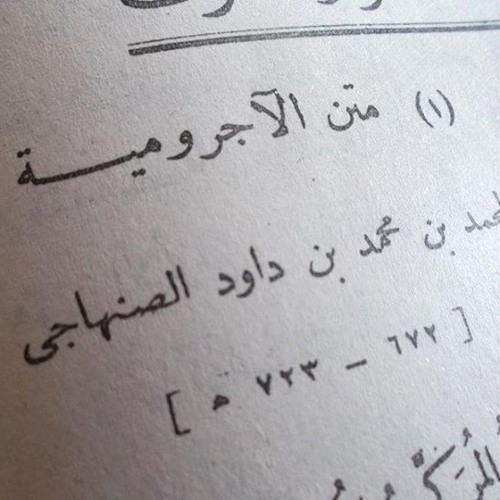 (١) متن الآجرومية
بن محمد بن داود الصنهاجى
[ ٦٧٢ – ٧٢٣ ھ ]